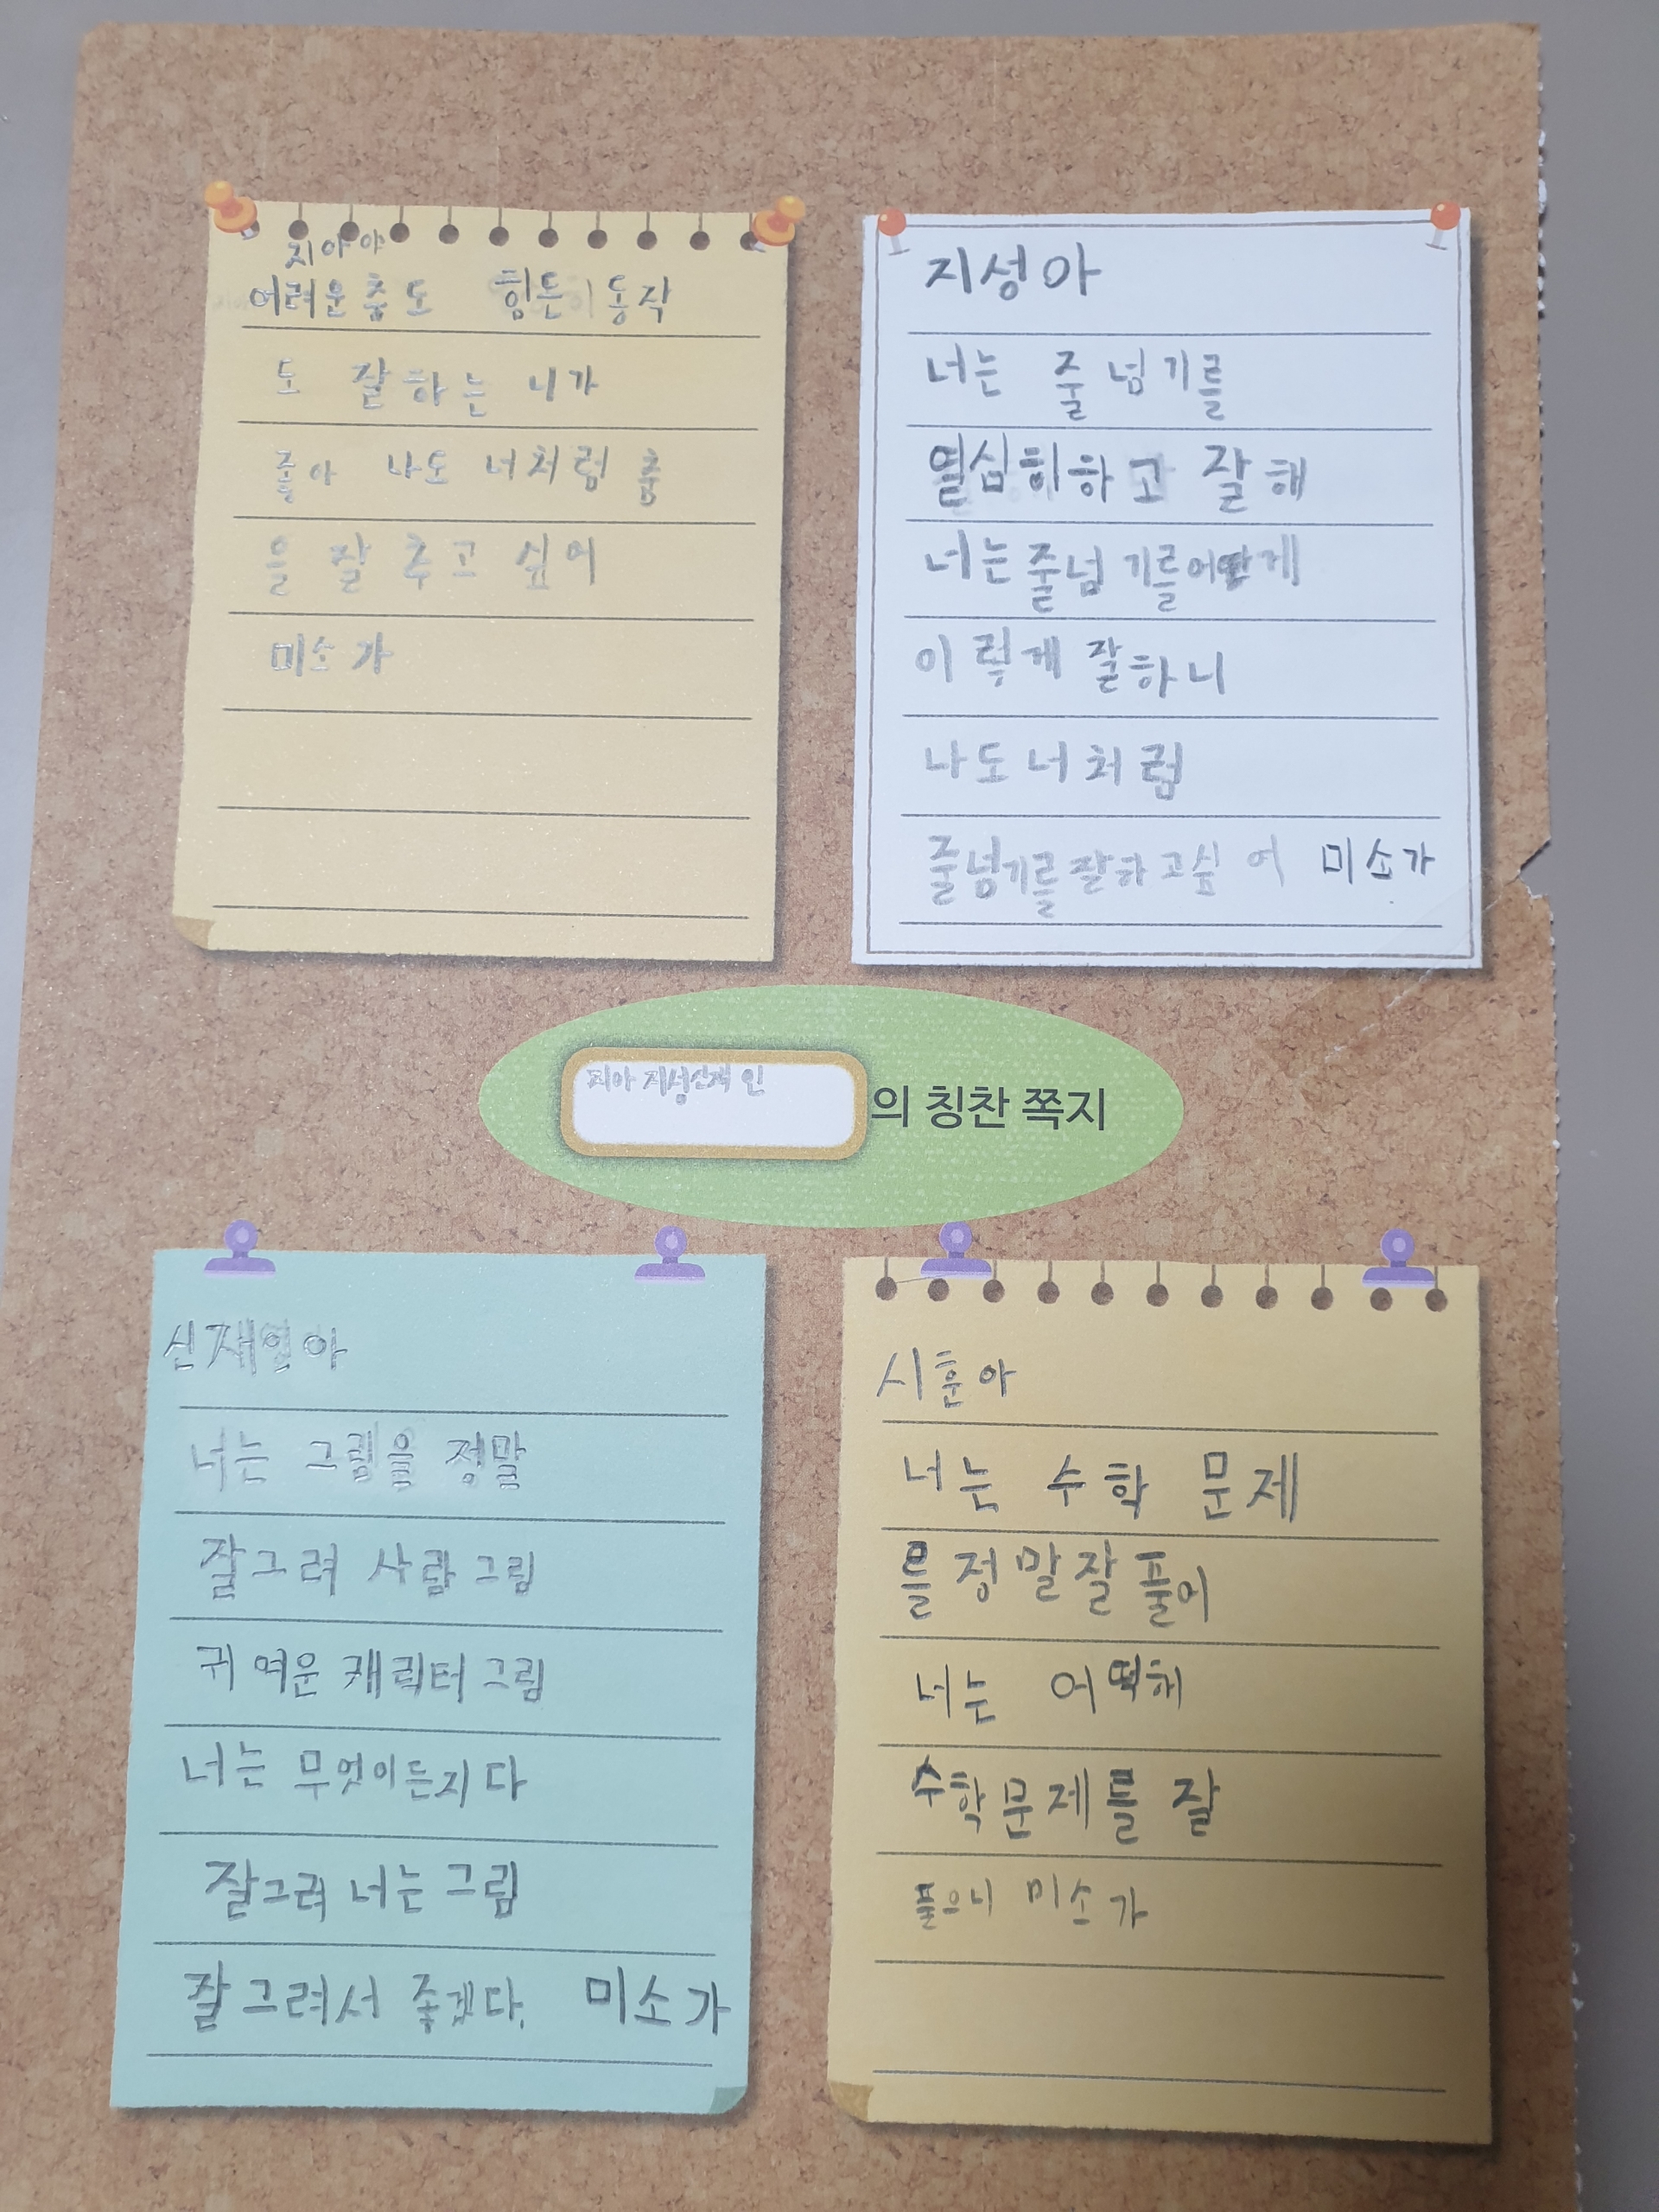 지아야
어려운 춤도 힘든 동작
도 잘하는 니가
좋아 나도 너처럼 춤
을 잘 추고 싶어
미소가
지성아
너는 줄넘기를
열심히하고 잘해
너는줄넘기를
이렇게 잘하니
나도너처럼
줄넘기를잘하고싶어 미소가
지아 지성 신재인
의 칭찬 쪽지
신재인아
너는 그림을 정말
잘그려 사람그림
귀여운 캐릭터그림
너는 무엇이든지 다
잘그려 너는 그림
잘그려서 좋겠다. 미소가
시훈아
너는 수학 문제
를 정말잘풀어
너는 어떡해
수학문제를 잘
풀으니 미소가